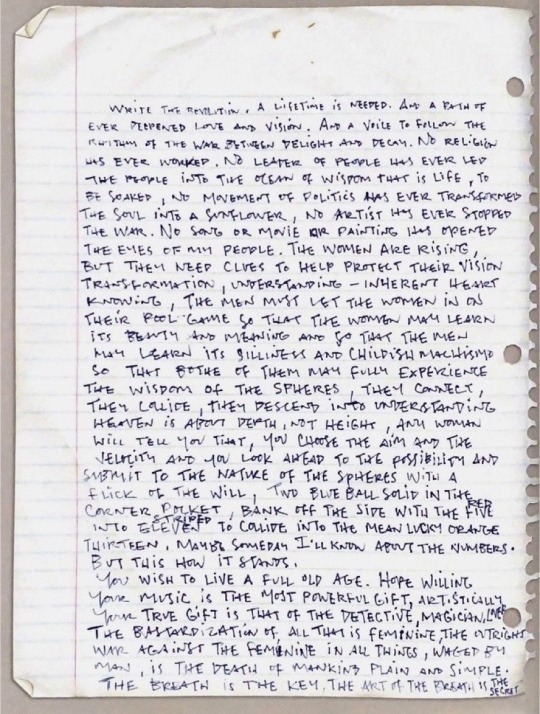 WRITE THE REVOLUTION. A LIFETIME IS NEEDED. AND A PATH OF
EVER DEEPENED LOVE AND VISION. AND A VOICE TO FOLLOW THE
RHYTHM OF THE WAR BETWEEN DELIGHT AND DECAY. NO RELIGION
HAS EVER WORKED. NO LEADER OF PEOPLE HAS EVER LED
THE PEOPLE INTO THE OCEAN OF WISDOM THAT IS LIFE, TO
BE SOAKED, NO MOVEMENT OF POLITICS HAS EVER TRANSFORMED
THE SOUL INTO A SUNFLOWER, NO ARTIST HAS EVER STOPPED
THE WAR. NO SONG OR MOVIE OR PAINTING HAS OPENED
THE EYES OF MY PEOPLE. THE WOMEN ARE RISING,
BUT THEY NEED CLUES TO HELP PROTECT THEIR VISION
TRANSFORMATION, UNDERSTANDING - INHERENT HEART
KNOWING, THE MEN MUST LET THE WOMEN IN ON
THEIR POOL GAME SO THAT THE WOMEN MAY LEARN
ITS BEAUTY AND MEANING AND SO THAT THE MEN
MAY LEARN ITS SILLINESS AND CHILDISH MACHISMO
SO THAT BOTHE OF THEM MAY FULLY EXPERIENCE
THE WISDOM OF THE SPHERES, THEY CONNECT,
THEY COLLIDE, THEY DESCEND INTO UNDERSTANDING
HEAVEN IS ABOUT DEPTH, NOT HEIGHT, ANY WOMAN
WILL TELL YOU THAT, YOU CHOOSE THE AIM AND THE
VELOCITY AND YOU LOOK AHEAD TO THE POSSIBILITY AND
SUBMIT TO THE NATURE OF THE SPHERES WITH A
FLICK OF THE WILL, TWO BLUE BALL SOLID IN THE
CORNER POCKET, BANK OFF THE SIDE WITH THE RED FIVE
INTO STRIPED ELEVEN TO COLLIDE INTO THE MEAN LUCKY ORANGE
THIRTEEN. MAYBE SOMEDAY I'LL KNOW ABOUT THE NUMBERS.
BUT THIS HOW IT STANDS.
YOU WISH TO LIVE A FULL OLD AGE. HOPE WILLING
YOUR MUSIC IS THE MOST POWERFUL GIFT, ARTISTICALLY
YOUR TRUE GIFT IS THAT OF THE DETECTIVE, MAGICIAN, LOVER
THE BASTARDIZATION OF ALL THAT IS FEMININE, THE OUTRIGHT
WAR AGAINST THE FEMININE IN ALL THINGS, WAGED BY
MAN, IS THE DEATH OF MANKIND PLAIN AND SIMPLE.
THE BREATH IS THE KEY, THE ART OF THE BREATH IS THE SECRET